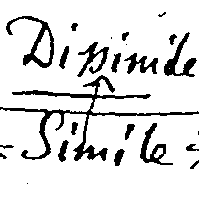 Dissimile
= Simile =